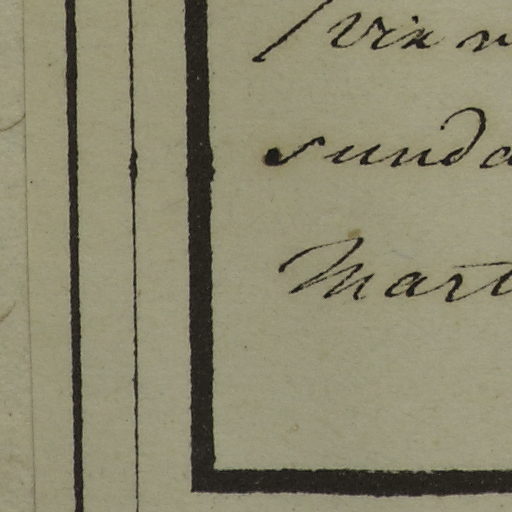 vix
sunda
Mart